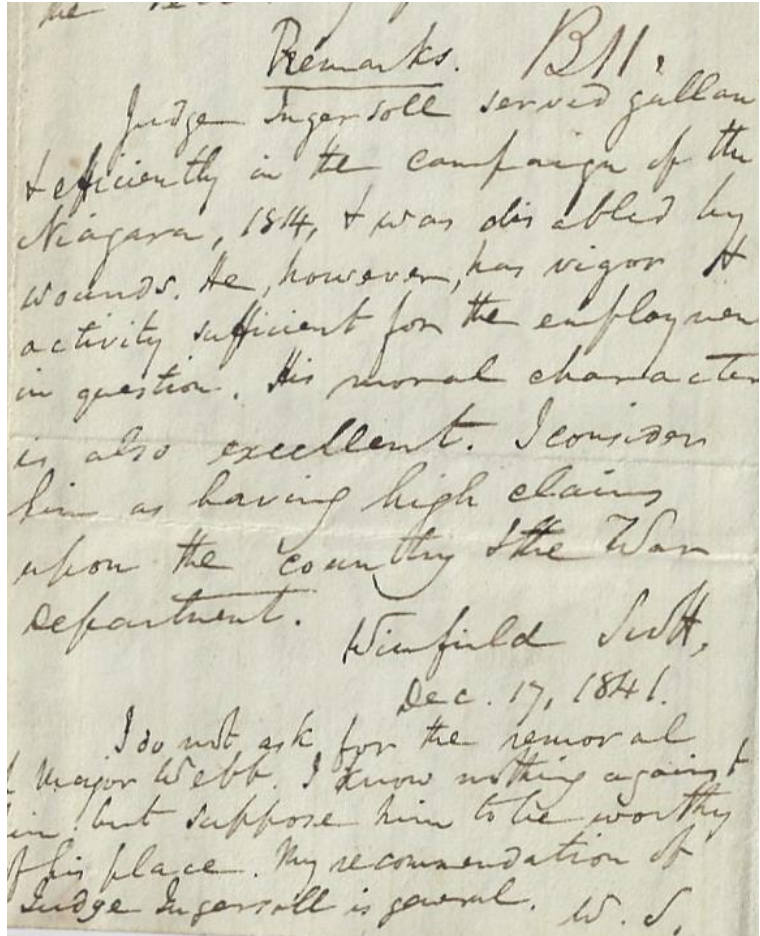 the
Remarks. B11.
Judge Ingersoll served gallan
& efficiently in the campaign of the
Niagara, 1814, & was disabled by
wounds. He, however, has vigor &
activity sufficient for the employmen
in question. His moral character
is also excellent. I consider
him as having high claims
upon the country & the War
Department.
Winfield Scott,
Dec. 17, 1841.
I do not ask for the removal
Major Webb. I know nothing against
him, but suppose him to be worthy
of his place. My recommendation of
Judge Ingersoll is general. W. S.